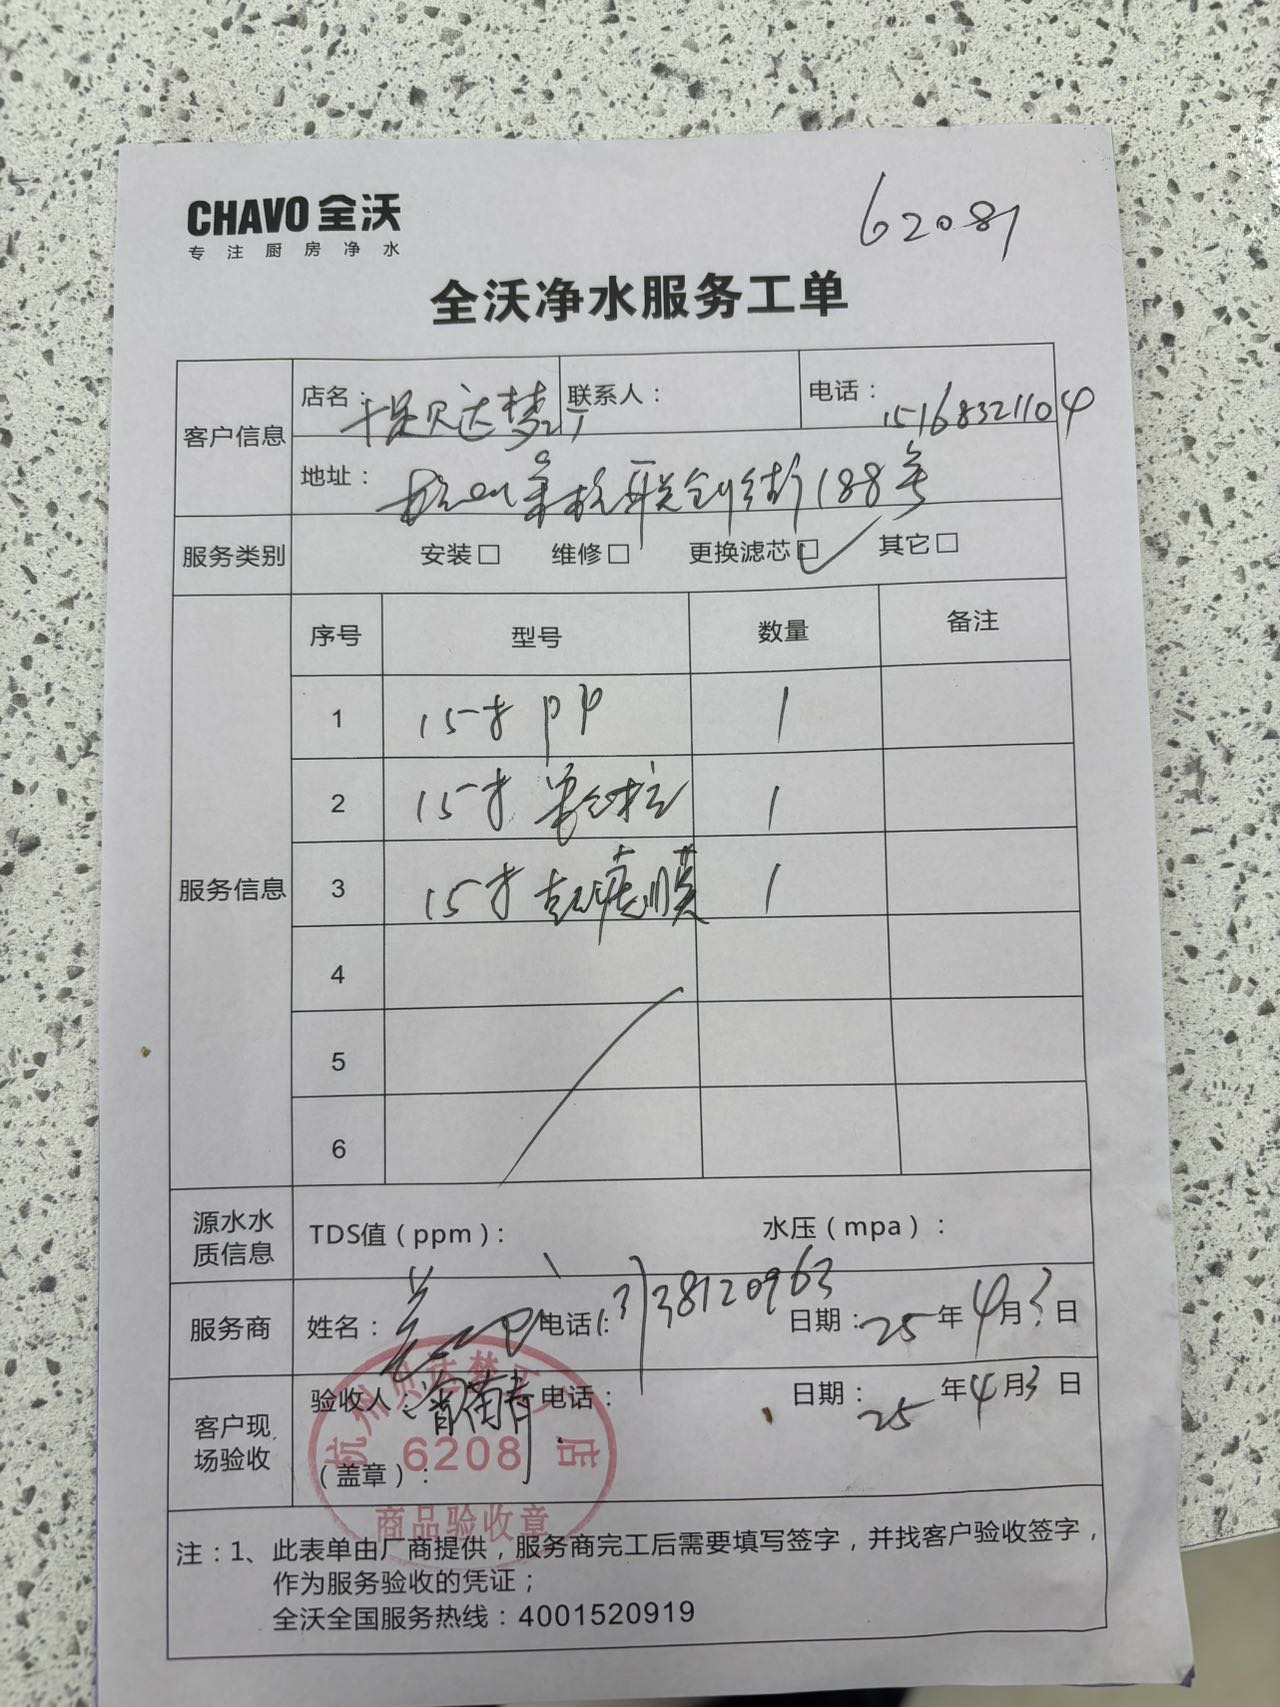 CHAVO 全沃
专注厨房净水
62081
全沃净水服务工单
客户信息
店名：贝达梦
联系人：
电话：15168321104
地址：联创街188号
服务类别
安装□ 维修□ 更换滤芯□ 其它□
服务信息
序号 型号 数量 备注
1 15寸 PP 1
2 15寸 1
3 15寸 超滤膜 1
4
5
6
源水水质信息
TDS值（ppm）： 水压（mpa）：
服务商
姓名： 电话：13738120963 日期：25年4月3日
客户现场验收
验收人： 电话： 日期：25年4月3日
（盖章）：
杭州贝达梦 店
6208
商品验收章
注：1、此表单由厂商提供，服务商完工后需要填写签字，并找客户验收签字，
作为服务验收的凭证；
全沃全国服务热线：4001520919